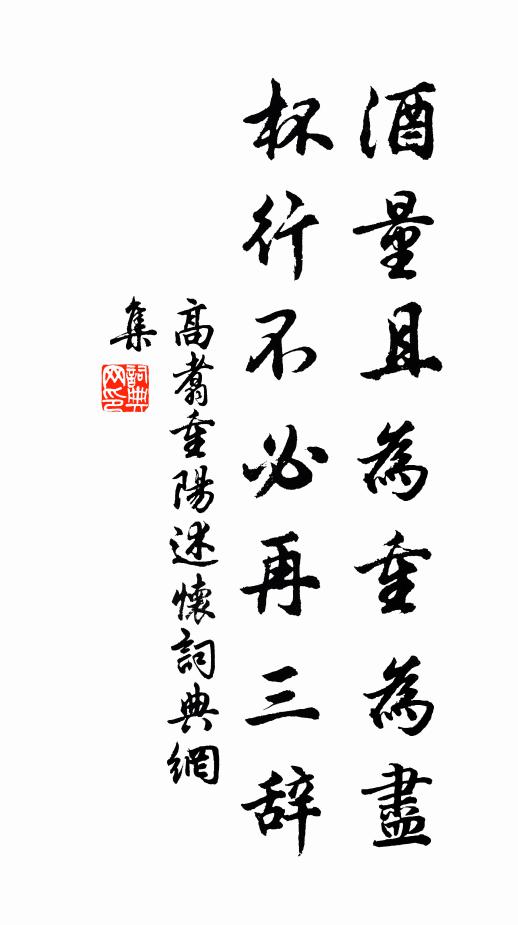 酒量且為重為盡
杯行不必再三辞
高翥重陽述懷詞典網
集
詞典
网印